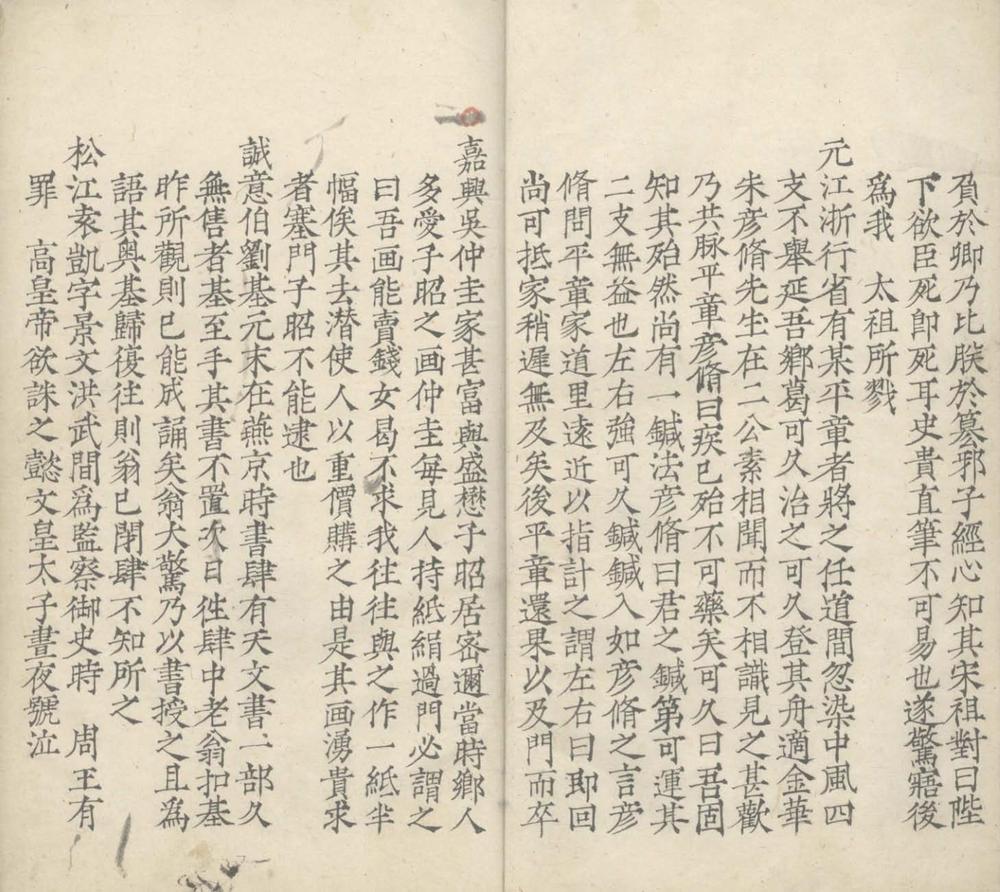 負於卿乃比朕於篡邪子經心知其宋祖對曰陛
下欲臣死即死耳史貴直筆不可易也遂驚寤後
爲我　太祖所戮
元江浙行省有某平章者將之任道間忽染中風四
支不舉延吾鄉葛可久治之可久登其舟適金華
朱彦脩先生在二公素相聞而不相識見之甚歡
乃共脉平章彦脩曰疾已殆不可藥矣可久曰吾固
知其殆然尚有一鍼法彦脩曰君之鍼第可運其
二支無益也左右強可久鍼鍼入如彦脩之言彦
脩問平章家道里遠近以指計之謂左右曰即回
尚可抵家稍遲無及矣後平章還果以及門而卒
嘉興吳仲圭家甚富與盛懋子昭居密邇當時鄉人
多愛子昭之画仲圭每見人持紙絹過門必謂之
曰吾画能賣錢女曷不求我往往與之作一紙半
幅俟其去潜使人以重價購之由是其画湧貴求
者塞門子昭不能逮也
誠意伯劉基元末在燕京時書肆有天文書一部久
無售者基至手其書不置次日徃肆中老翁扣基
昨所觀則已能成誦矣翁大驚乃以書授之且爲
語其奥基歸復往則翁已閉肆不知所之
松江袁凱字景文洪武間爲監察御史時　周王有
罪　高皇帝欲誅之懿文皇太子晝夜號泣